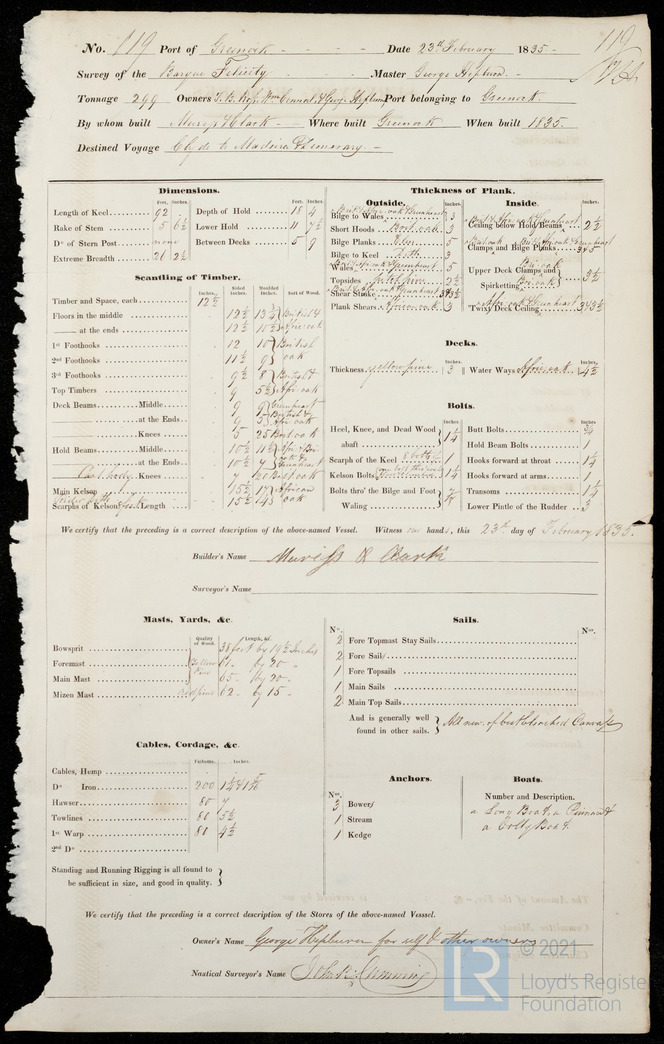 No. 119 Port of Greenock Date 23rd February 1835 119
Survey of the Barque Felicity Master George Hepburn
Tonnage 299 Owners Port belonging to Greenock
By whom built Where built Greenock When built 1835
Destined Voyage Clyde to Madeira & Demerary
Dimensions.
Feet. Inches.
Length of Keel 92
Rake of Stem 5 6½
Do of Stern Post none
Extreme Breadth 26 2½
Feet. Inches.
Depth of Hold 18 4
Lower Hold 11 7½
Between Decks 5 9
Scantling of Timber.
Inches. Sided Inches. Moulded Inches. Sort of Wood.
Timber and Space, each 12½
Floors in the middle 12½ 13½ British &
at the ends 12½ 10½ Afric oak
1st Foothooks 12 10 British
2nd Foothooks 11½ 9 oak
3rd Foothooks 9½ 8 British &
Top Timbers 9 5½ Afri oak
Deck Beams Middle 9 9 Greenheart
at the Ends 9 British &
Knees 5 25 Brit oak
Hold Beams Middle 10½ 11½
at the Ends 10½ Greenheart
Knees 7 20 Brit oak
Main Kelson 15½ 17 African
Scarphs of Kelson Length 15½ 14 oak
Thickness of Plank.
Outside. Inches.
Bilge to Wales 3
Short Hoods Brit oak 3
Bilge Planks Elm 5
Bilge to Keel 3
Wales 5
Topsides 2½
Shear Strake
Plank Shears Afric oak 3
Inside. Inches.
Ceiling below Hold Beams 2½
Clamps and Bilge Planks
Upper Deck Clamps and
Spirketting Bri oak 3½
Twixt Deck Ceiling
Decks.
Thickness yellow pine 3 Inches.
Water Ways Afric oak 4½ Inches.
Bolts.
Heel, Knee, and Dead Wood
abaft 1¼
Scarph of the Keel 8 bolts 1
Kelson Bolts 1¼
Bolts thro' the Bilge and Foot
Waling
Butt Bolts ¾
Hold Beam Bolts 1
Hooks forward at throat 1¼
Hooks forward at arms 1
Transoms 1¼
Lower Pintle of the Rudder 3
We certify that the preceding is a correct description of the above-named Vessel. Witness our hands, this 23rd day of February 1835.
Builder's Name
Surveyor's Name
Masts, Yards, &c.
Quality of Wood. Length, &c.
Bowsprit 38 feet by 19½ Inches
Foremast Yellow 61 by 20
Main Mast Pine 65 by 20
Mizen Mast red pine 62 by 15
Sails.
No. No.
2 Fore Topmast Stay Sails
2 Fore Sails
1 Fore Topsails
1 Main Sails
2 Main Top Sails
And is generally well
found in other sails. All new of best bleached Canvass
Cables, Cordage, &c.
Fathoms. Inches.
Cables, Hemp
Do Iron 200
Hawser 80 7
Towlines 80 5½
1st Warp 80 4½
2nd Do
Standing and Running Rigging is all found to
be sufficient in size, and good in quality.
Anchors.
No.
3 Bowers
1 Stream
1 Kedge
Boats.
Number and Description.
a Long Boat, a Pinnace &
a Jolly Boat
We certify that the preceding is a correct description of the Stores of the above-named Vesssel.
Owner's Name George Hepburn for self & other owners
Nautical Surveyor's Name John Cumming
LR © 2021
Lloyd's Register
Foundation